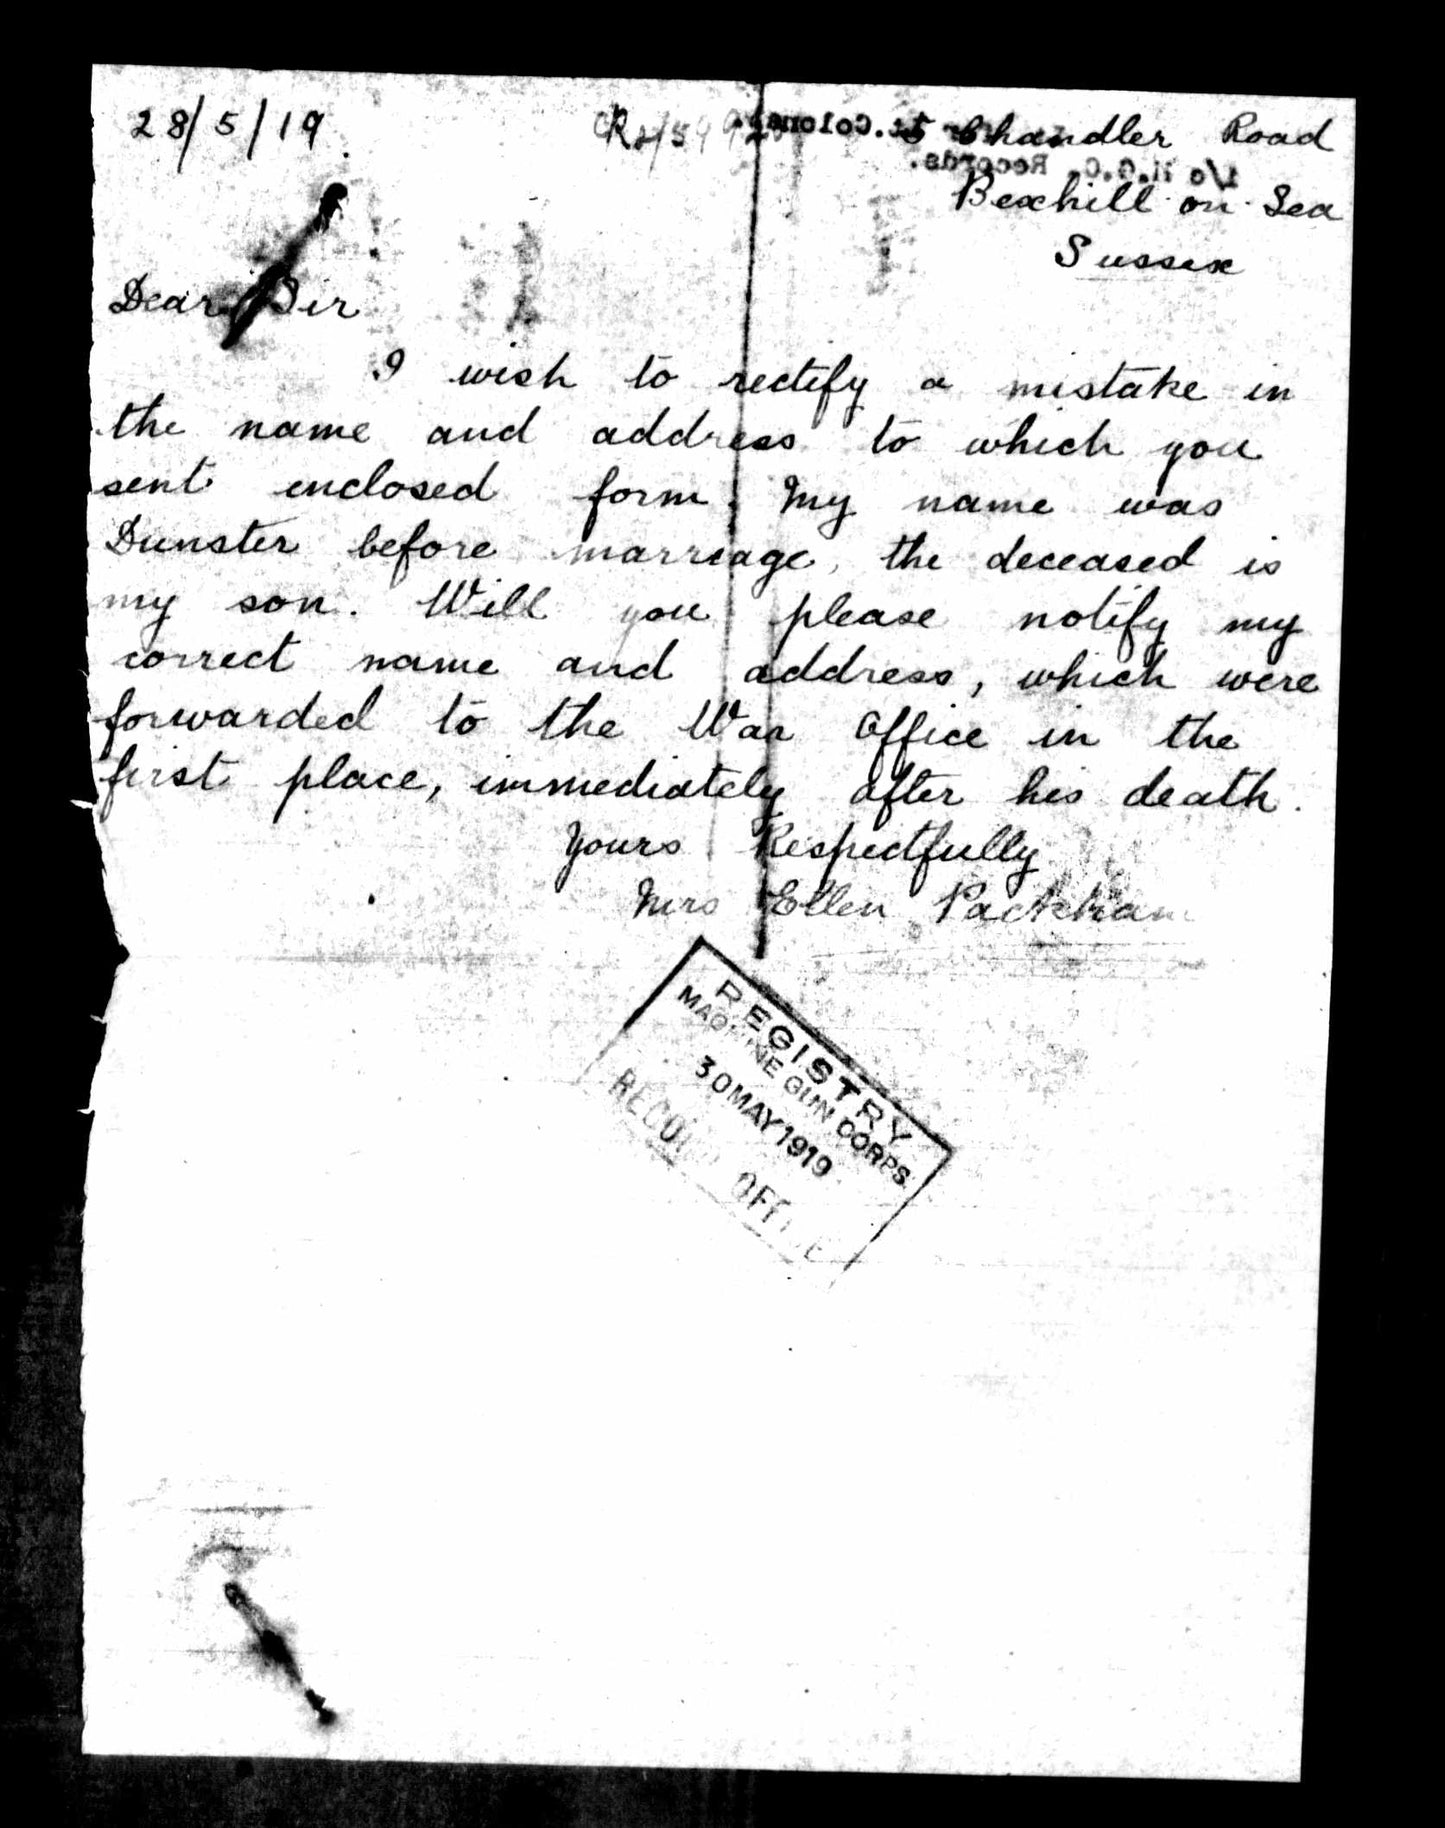 28/5/19
5 Chandler Road
Bexhill-on-Sea
Sussex
Dear Sir
I wish to rectify a mistake in
the name and address to which you
sent enclosed form. My name was
Dunster before marriage, the deceased is
my son. Will you please notify my
correct name and address, which were
forwarded to the War Office in the
first place, immediately after his death.
Yours Respectfully
Mrs Ellen Packham
REGISTRY
MACHINE GUN CORPS.
30 MAY 1919
RECORD OFFICE
Lt. Colonel.
i/c M.G.C. Records.